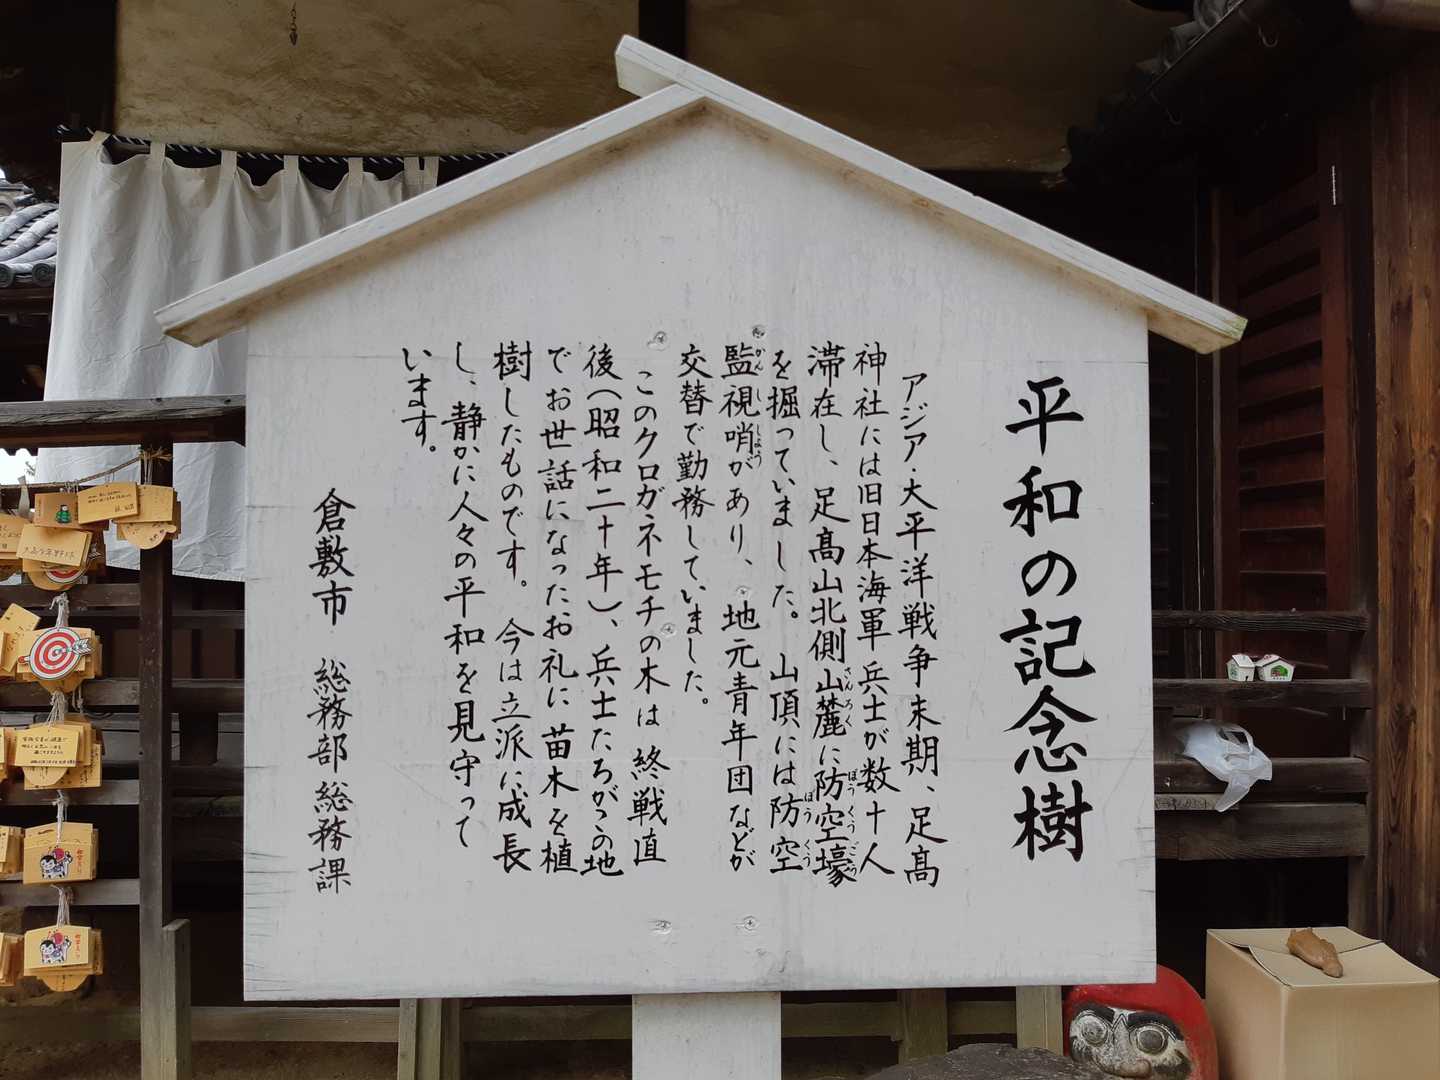 平和の記念樹
アジア・大平洋戦争末期、足高
神社には旧日本海軍兵士が数十人
滞在し、足高山北側山麓に防空壕
さんろく
ぼうくうごう
を掘っていました。山頂には防空
ぼうくう
監視哨があり、地元青年団などが
かんししょう
交替で勤務していました。
このクロガネモチの木は終戦直
後(昭和二十年)、兵士たちがこの地
でお世話になったお礼に苗木を植
樹したものです。今は立派に成長
し、静かに人々の平和を見守って
います。
倉敷市 総務部総務課